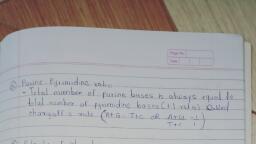 Page No.
Date
Purine-Pyrimidine ratio
- Total number of purine bases is always equal to
total number of pyrimidine bases (1:1 ratio) Called
chargaff's rule. (A+G = T+C OR A+G/T+C = 1/1)